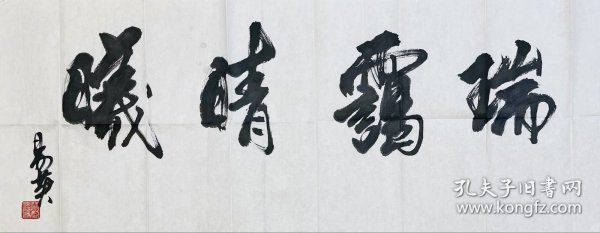 瑞靄晴曦
孔夫子旧书网
www.kongfz.com